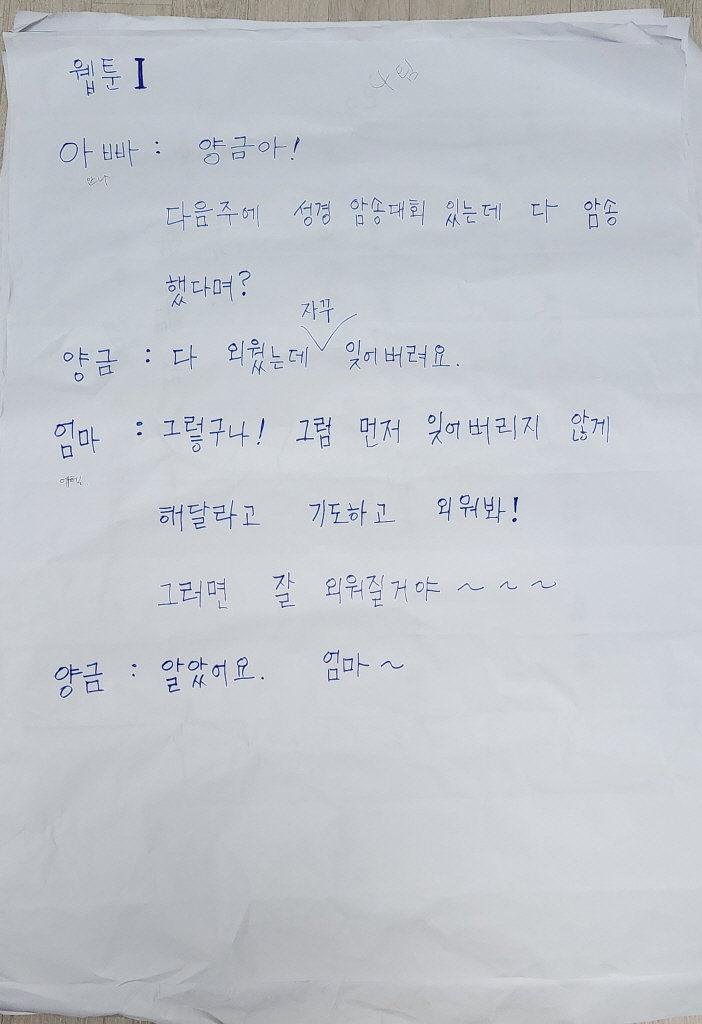 웹툰 I
아빠 : 양금아!
다음주에 성경 암송대회 있는데 다 암송
했다며?
자꾸
양금 : 다 외웠는데 잊어버려요.
엄마 : 그렇구나! 그럼 먼저 잊어버리지 않게
해달라고 기도하고 외워봐!
그러면 잘 외워질거야 ~ ~ ~
양금 : 알았어요. 엄마 ~